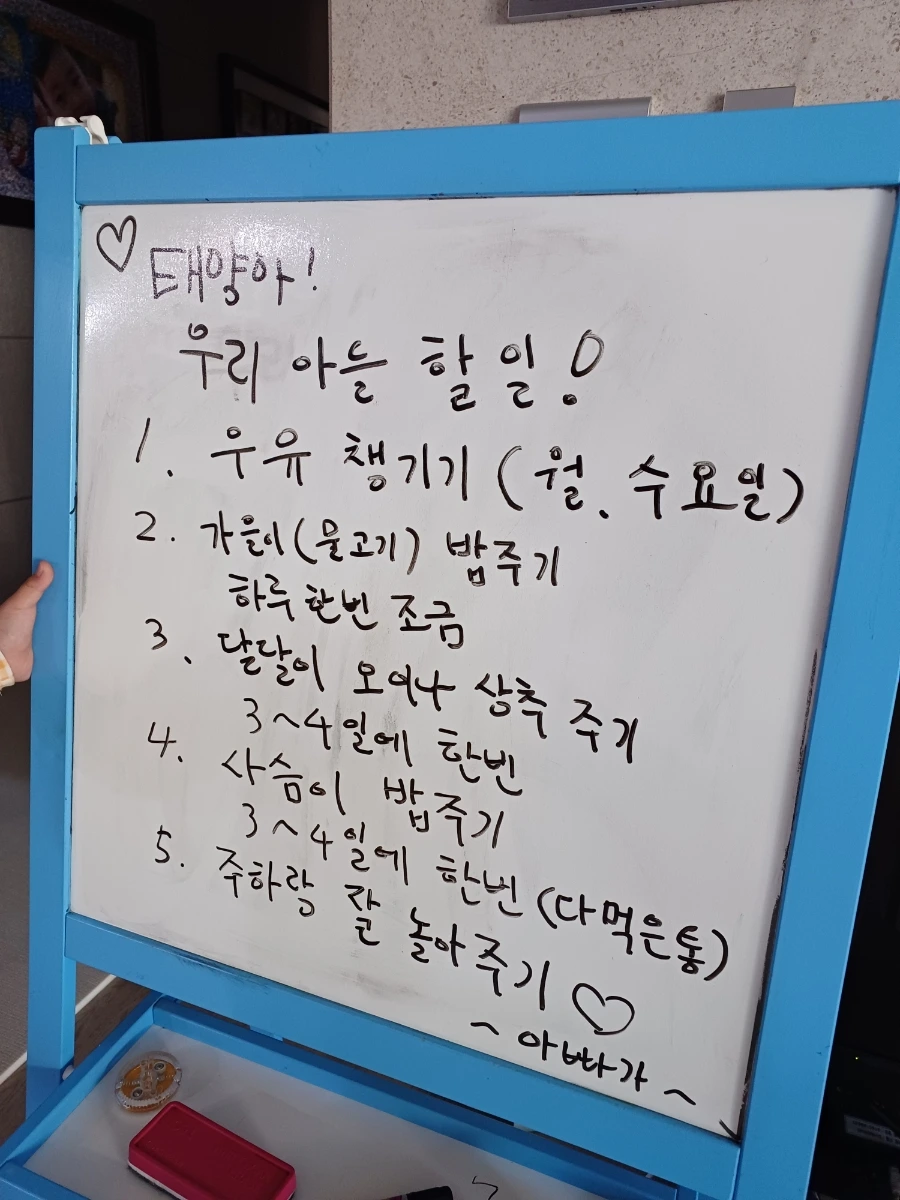 ♡ 태양아!
우리 아들 할 일!
1. 우유 챙기기 (월, 수요일)
2. 가을이(물고기) 밥주기
하루 한번 조금
3. 달달이 오이나 상추 주기
3~4일에 한번
4. 사슴이 밥주기
3~4일에 한번 (다먹은통)
5. 주하랑 잘 놀아주기 ♡
~ 아빠가 ~